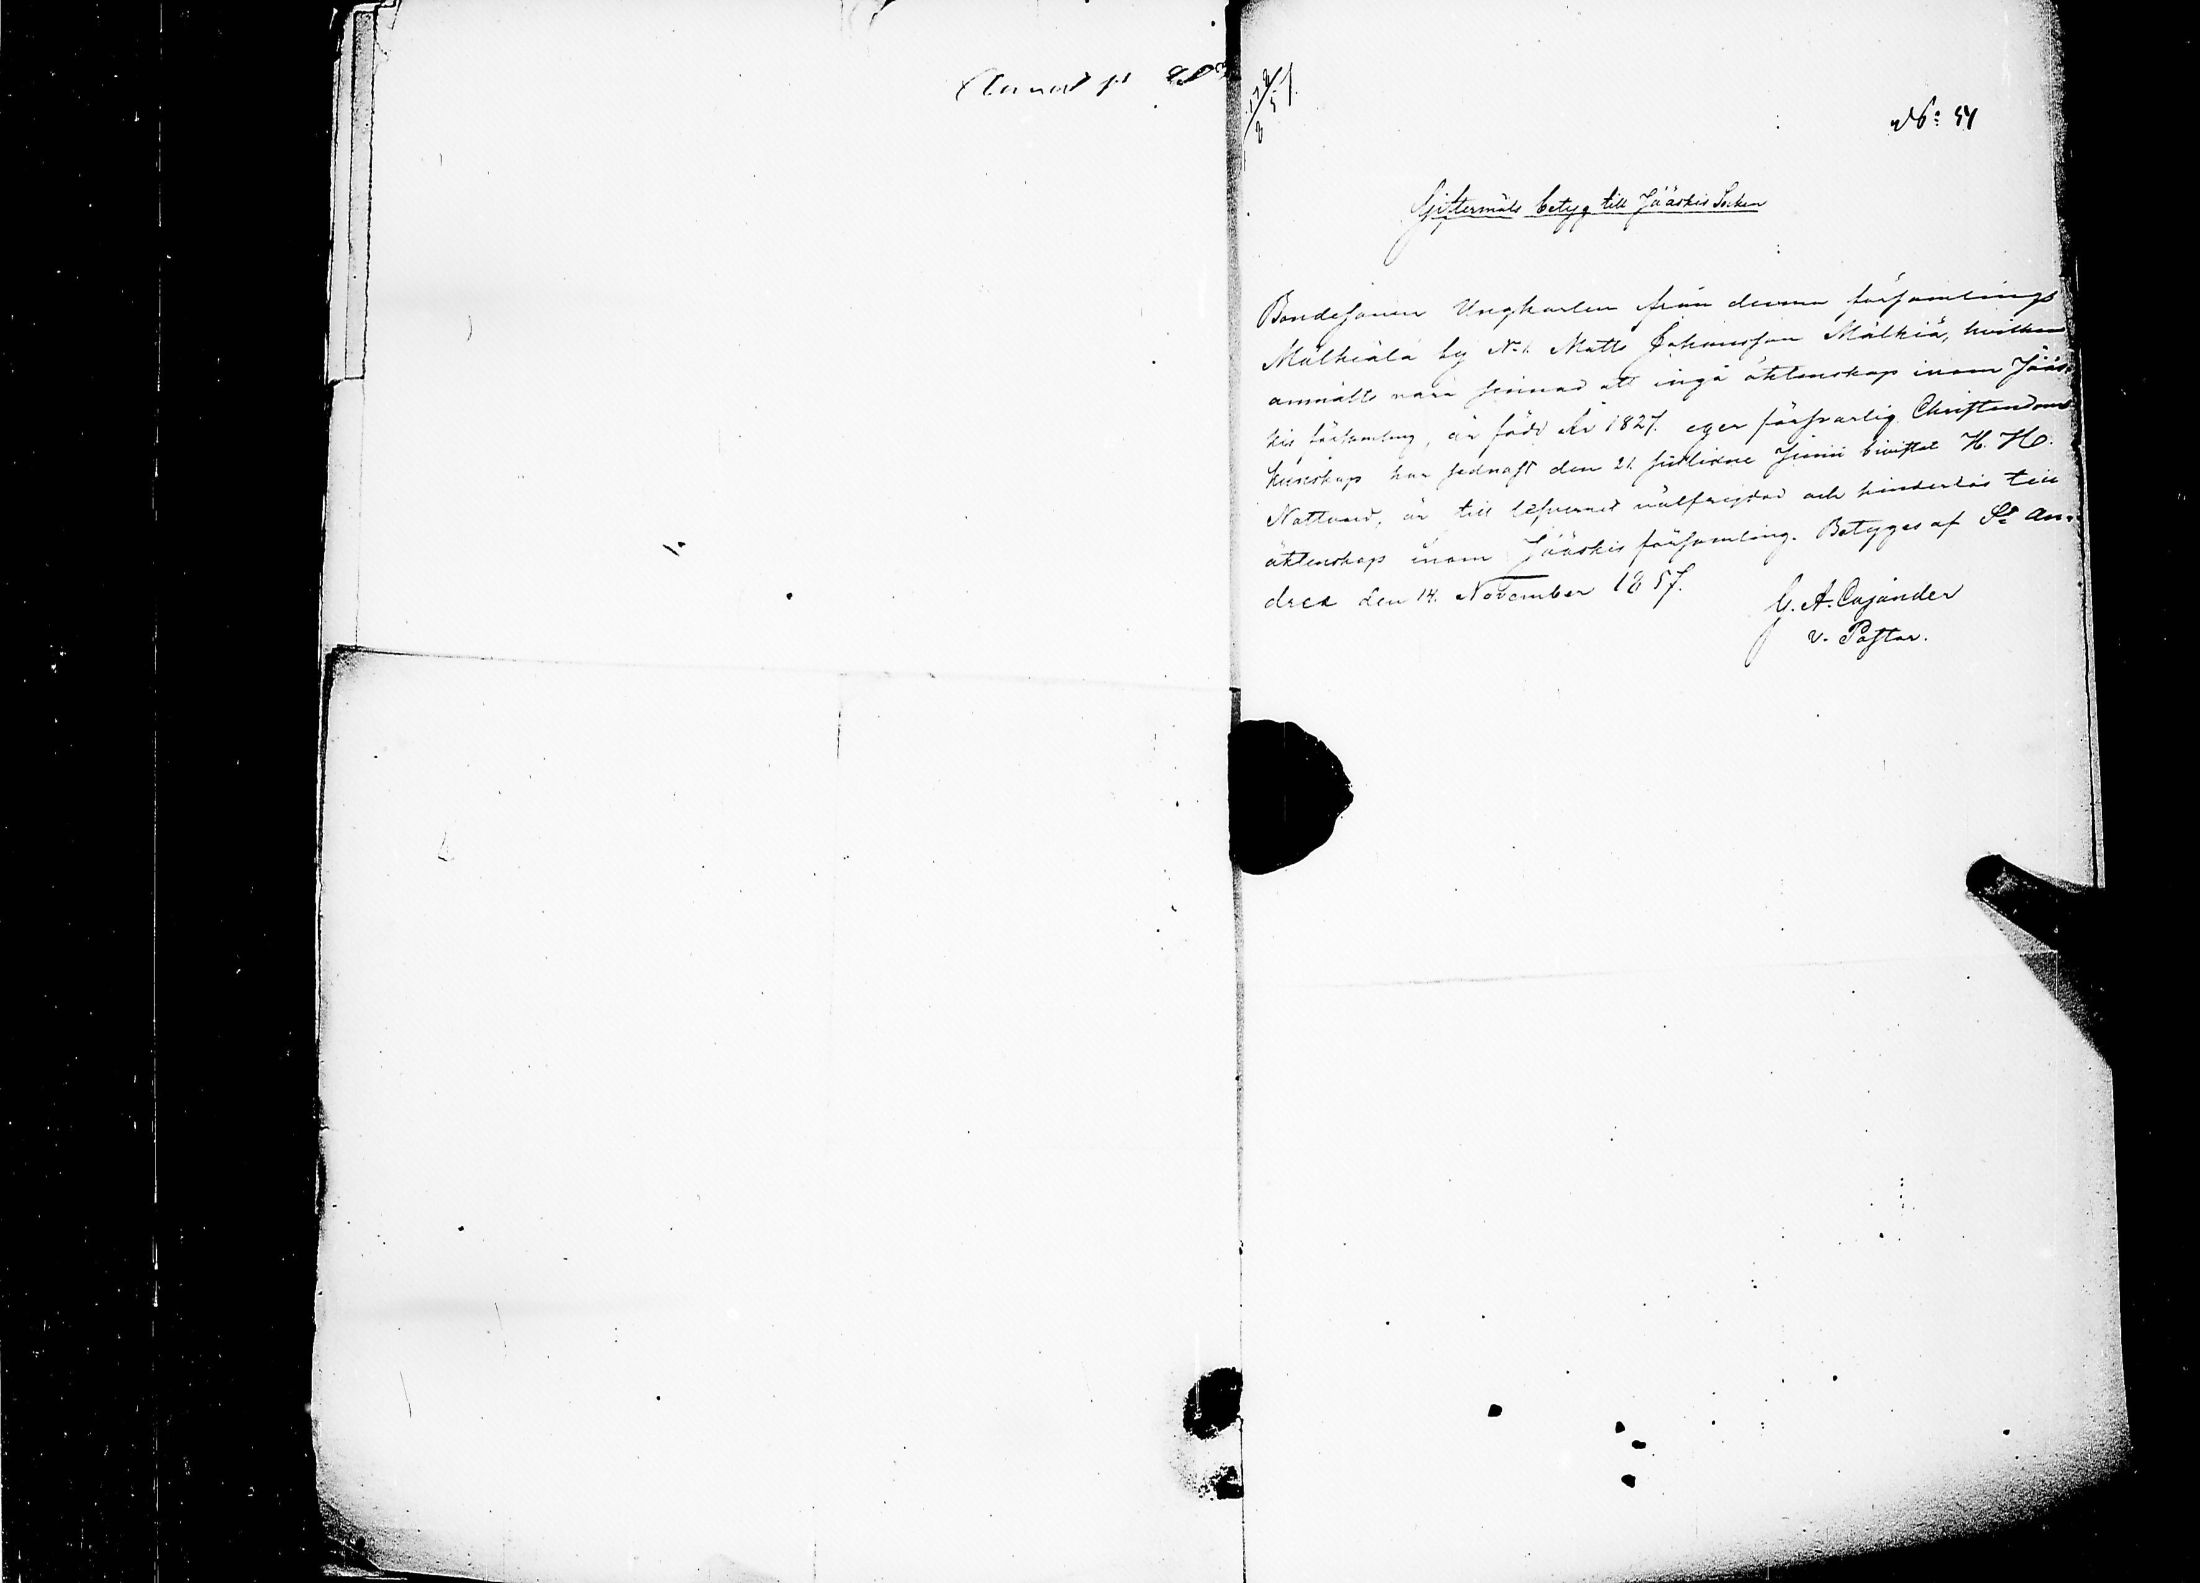 No: 54
Giftermåls betyg till Jääskis Socken
Bondesonen Ungkarlen från denna församlings
Mälkiälä by No 1. Matts Johansson Mälkiä, hvilken
anmälts vara sinnad att ingå äktenskap inom Jääs-
kis församling, är född År 1827. eger försvarlig Christendoms
kunskap har sednast den 21 sistlidne Junii bivistat H. H.
Nattvard, är till lefvernet välfrejdad och hinderlös till
äktenskap inom Jääskis församling. Betyges af St An-
drea den 14. November 1857.
G. A. Cajander
v. Pastor.